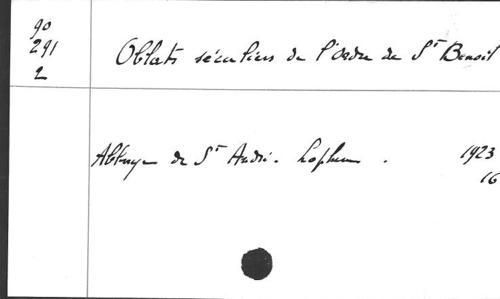 90
291
2
Oblats séculiers de l'Ordre de St Benoit
Abbaye de St André. Lophem. 1923
16